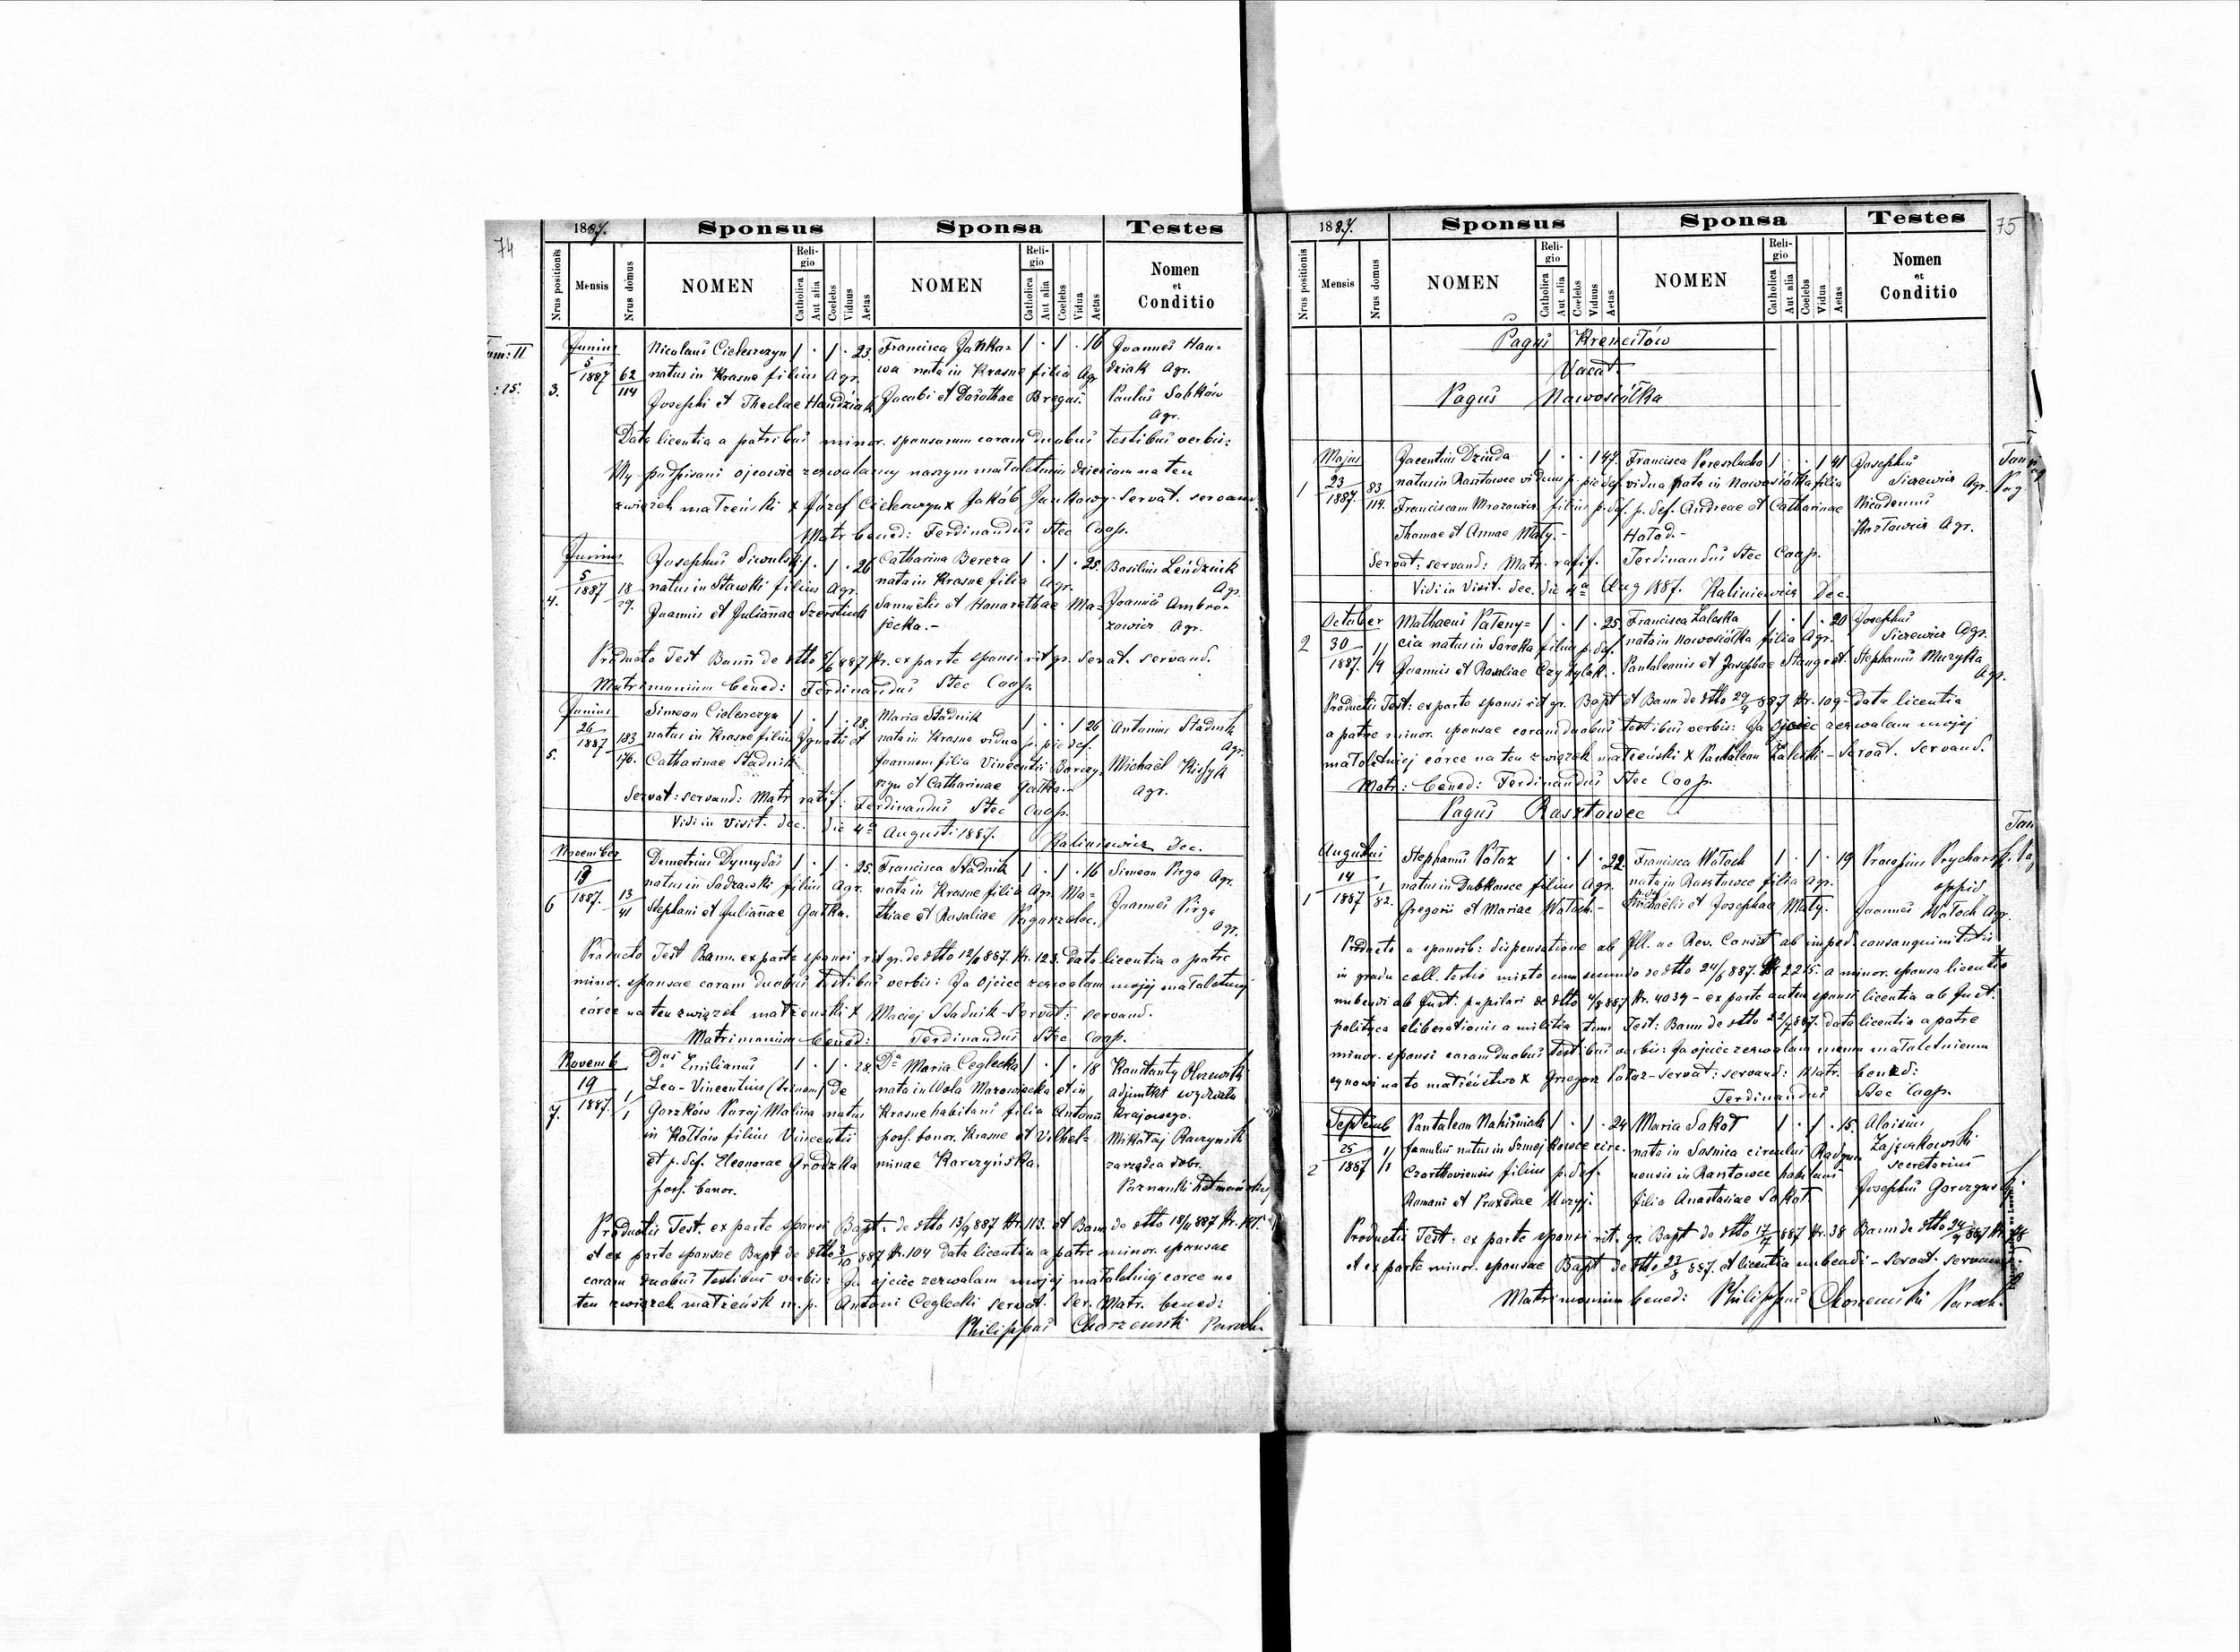 74
1887.
Sponsus
Sponsa
Testes
Nrus positionis
Mensis
Nrus domus
NOMEN
Religio
Catholica
Aut alia
Coelebs
Viduus
Aetas
NOMEN
Religio
Catholica
Aut alia
Coelebs
Vidua
Aetas
Nomen et Conditio
3.
Junius 5 1887
62 114
Nicolaus Cielenczyn 1 · 1 · 23
natus in Krasne filius Agr.
Josephi et Theclae Handziak
Francisca Jankowa 1 · 1 · 16
nata in Krasne filia Agr
Jacobi et Dorothae Bregus.
Joannes Handziak Agr.
Paulus Sobków Agr.
Data licentia a patribus minor. sponsorum coram duobus testibus verbis:
My podpisani ojcowie zezwalamy naszym małoletnim dzieciom na ten
związek małżeński x Józef Cielenczyn x Jakób Jankowy - Servat. servand
Matr bened: Ferdinandus Stec Coop.
4.
Junius 5 1887
18 29.
Josephus Siwulski 1 · 1 · 26
natus in Stawki filius Agr.
Joannis et Julianae
Catharina Bereza 1 · 1 · 25.
nata in Krasne filia Agr.
Samuelis et Honorathae Majecka.-
Basilius Lendziuk Agr.
Joannes Ambrozowicz Agr.
Producto Test Bann de dtto 5/6 887 ex parte sponsi rit gr. Servat. servand.
Matrimonium bened: Ferdinandus Stec Coop.
5.
Junius 26 1887
183 176.
Simeon Cielenczyn 1 · 1 · 28.
natus in Krasne filius Ignatii et
Catharinae Stadnik
Maria Stadnik 1 · · 1 26
nata in Krasne vidua p. pie def.
Joannem filia Vincentii
et Catharinae Gałka.-
Antonius Stadnik Agr.
Michaël Agr.
Servat: servand: Matr ratif: Ferdinandus Stec Coop.
Vidi in Visit. dec. die 4a Augusti 1887. Kaliniewicz Dec.
6
November 13 1887.
13 41
Demetrius Dymydas 1 · 1 · 25.
natus in Sadzawki filius Agr.
Stephani et Julianae Gałka.
Francisca Stadnik 1 · 1 · 16
nata in Krasne filia Agr. Mathiae et Rosaliae
Simeon Pirga Agr.
Joannes Pirga Agr.
Producto Test Bann. ex parte sponsi rit gr. de dtto 12/11 887. Nr. 123. Data licentia a patre
minor. sponsae coram duobus testibus verbis: Ja ojciec zezwalam mojej małoletniej
córce na ten związek małżeński x Maciej Stadnik - Servat: servand.
Matrimonium bened: Ferdinandus Stec Coop.
7.
Novemb 19 1887.
1 1
Dnus Emilianus 1 · 1 · 28.
Leo-Vincentius (trinom) de
Gorzków Paraj Malina natus
in Kołtów filius Vincentii
et p. def. Eleonorae Grodzka
poss. bonor.
Dna Maria Ceglecka 1 · 1 · 18
nata in Wola Mazowiecka et in
Krasne habitans filia Antonii
poss. bonor. Krasne et Vilhelminae Karczyńska.
Konstanty
adjunkt wydziału
krajowego.
Mikołaj Raczynski
zarządca dobr.
Productis Test. ex parte sponsi Bapt. de dtto 13/9 887 Nr. 113. et Bann. de dtto 18/11 887
et ex parte sponsae Bapt de dtto 3/10 887 Nr. 104 Data licentia a patre minor. sponsae
coram duobus testibus verbis: Ja ojciec zezwalam mojej małoletniej corce na
ten związek małżeńsk m.p. Antoni Ceglecki servat. ser. Matr. bened:
Philippus Chorzemski Paroch.
75
1887.
Sponsus
Sponsa
Testes
Nrus positionis
Mensis
Nrus domus
NOMEN
Religio
Catholica
Aut alia
Coelebs
Viduus
Aetas
NOMEN
Religio
Catholica
Aut alia
Coelebs
Vidua
Aetas
Nomen et Conditio
Pagus Krencitów
Vacat.
Pagus Nowosiółka
1
Majus 23 1887.
83 114.
Jacentius Dziuda 1 · · 1 47.
natus in Rasztowce viduus p. pie def
Franciscam Mrozowicz filius p. def.
Thomae et Annae Mały.-
Francisca Pereszlucha 1 · · 1 41
vidua nata in Nowosiółka filia
p. def. Andreae et Catharinae
Hołod.-
Josephus Sicrewicz Agr.
Nicodemus Kozłowicz Agr.
Servat: servand: Matr. ratif. Ferdinandus Stec Coop.
Vidi in Visit. dec. die 4a Aug 1887. Kaliniewicz Dec.
2
October 30 1887.
11 19
Mathaeus Patenycia 1 · 1 · 25.
natus in Soroka filius p. def.
Joannis et Rosaliae
Francisca Zaleska 1 · 1 · 20
nata in Nowosiółka filia Agr.
Pantaleonis et Josephae Stangret.
Josephus Sicrewicz Agr.
Stephanus Muzyka Agr.
Productis Test: ex parte sponsi rit gr. Bapt et Bann de dtto 29/9 887 Nr. 109 - data licentia
a patre minor. sponsae coram duobus testibus verbis: Ja ojciec zezwalam mojej
małoletniej córce na ten związek małżeński x Pantaleon Zaleski - Servat. servand.
Matr: bened: Ferdinandus Stec Coop.
Pagus Rasztowce
1
Augustus 14 1887
1 82.
Stephanus Pataz 1 · 1 · 22
natus in Dubkowce filius Agr.
Gregorii et Mariae Wołoch.-
Francisca Wołoch 1 · 1 · 19
nata in Rasztowce filia Agr.
Michaëlis et Josephae Mały.
Procopius Prycharski oppid.
Joannes Wołoch Agr.
Producto a sponsib: dispensatione ab Ill. ac Rev. Consist ab imped. consanguinitatis
in gradu coll. tertio mixto cum secundo de dtto 24/6 887. Nr 2215. a minor. sponsa licentia
nubendi ab Just. pupilari de dtto 4/8 887 Nr. 4039 - ex parte autem sponsi licentia ab Just.
politica eliberationis a militia tum Test: Bann de dtto 22/7 887. data licentia a patre
minor. sponsi coram duobus testibus verbis: Ja ojciec zezwalam memu małoletniemu
synowi na to małżeństwo x Grzegorz Pataz - servat: servand: Matr. bened:
Ferdinandus Stec Coop.
2
Septemb 25 1887
Pantaleon Nahirniak 1 · 1 · 24
famulus natus in circ.
Czortkoviensis filius p. def.
Romani et Praxedae
Maria Sokoł 1 · 1 · 15.
nata in Sosnica circulus
in Rasztowce habitans
filia Anastasiae Sokoł
Aloisius Zajączkowski secretarius
Josephus Gorczynski
Productis Test: ex parte sponsi rit. gr. Bapt de dtto 17/7 887 Nr. 38 Bann de dtto 24/9 887
et ex parte minor. sponsae Bapt de dtto 23/8 887. et licentia nubendi - servat: servand.
Matrimonium bened: Philippus Chorzemski Paroch.